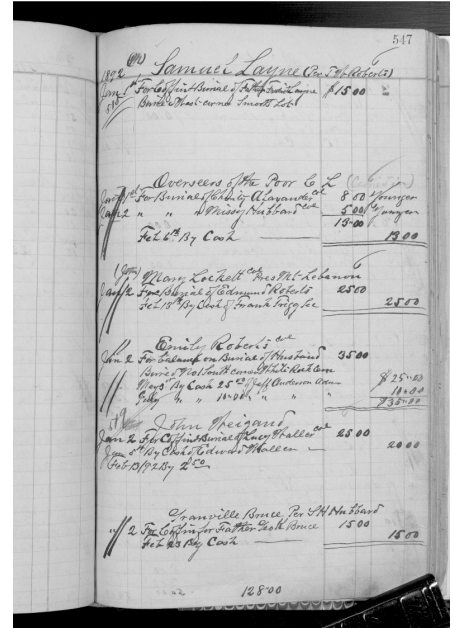 547
1892 Samuel Layne (Per J W Roberts)
Jan 1st For Coffin & Burial of Father Layne $15 00
Buried West corner Smooth Lot
Overseers of the Poor C L
Jan 1st For Burial of Charity A Lavander col 8 00 Younger
Jan 2 " " " Missy Hubbard col 5 00 Younger
13 00
Feb 6th By Cash 13 00
Mary Lockett col Pres Mt Lebanon
Jan 2 For Burial of Edmund Roberts 25 00
Feb 18th By Cash of Frank Trigg Sec 25 00
Emily Roberts col
Jan 2 For balance on Burial of Husband 35 00
Buried West South corner White Rock Cem
May 3 By Cash 25 00 of Jeff Anderson Adm $25 00
" " 10 00 " " " 10 00
$35 00
519
John Weigand
Jan 2 For Coffin & Burial of Lucy Waller col 25 00
5th By Cash of Edward Waller 20 00
Feb 13/92 By 2 50
Granville Bruce Per S H Hubbard
" 2 For Coffin for Father Scott Bruce 15 00
Feb 23 By Cash 15 00
128 00